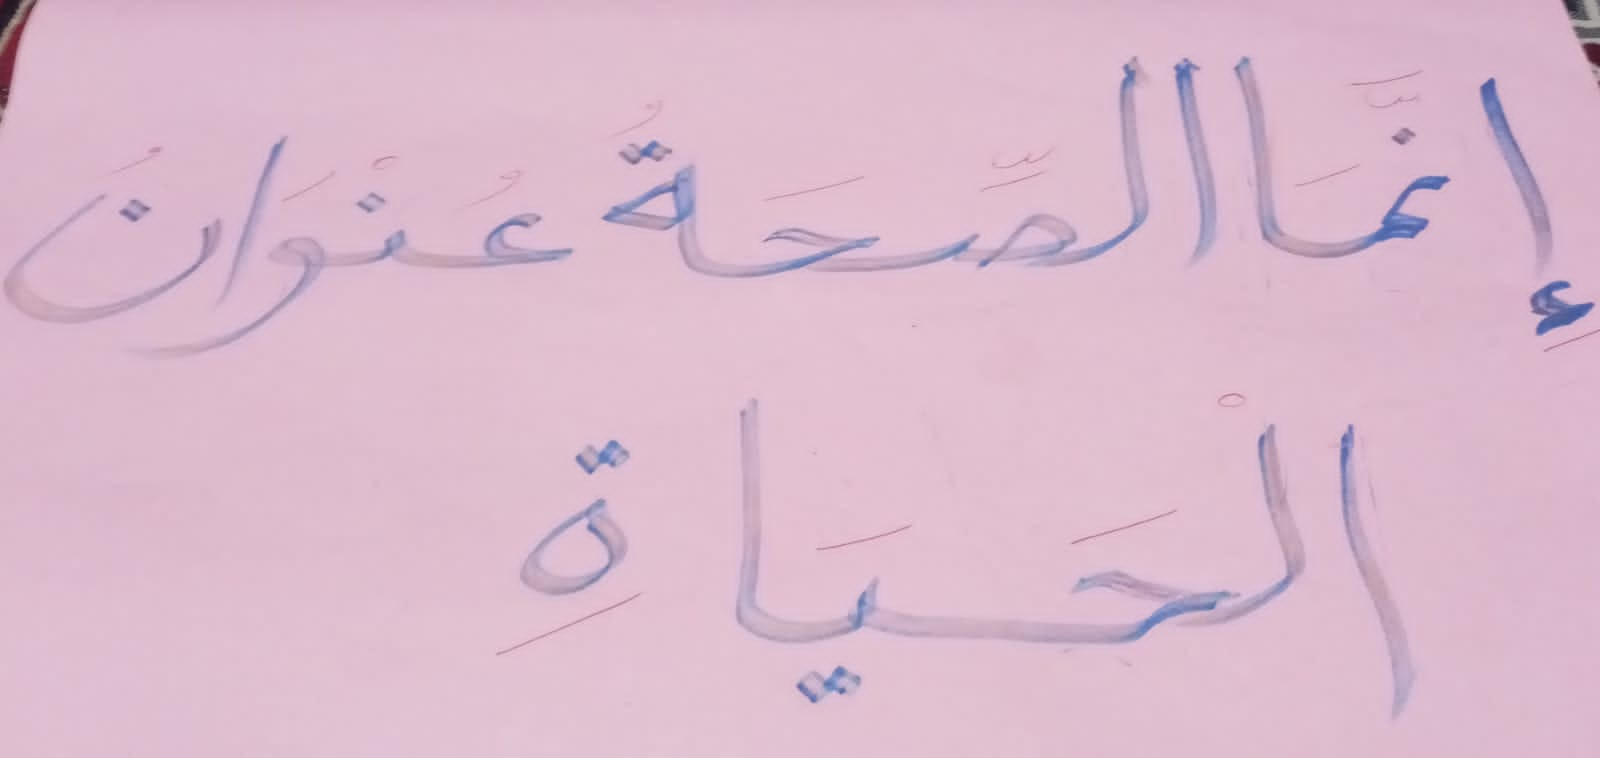 إِنَّمَا الصِّحَةُ عُنْوَانُ
الْحَيَاةِ